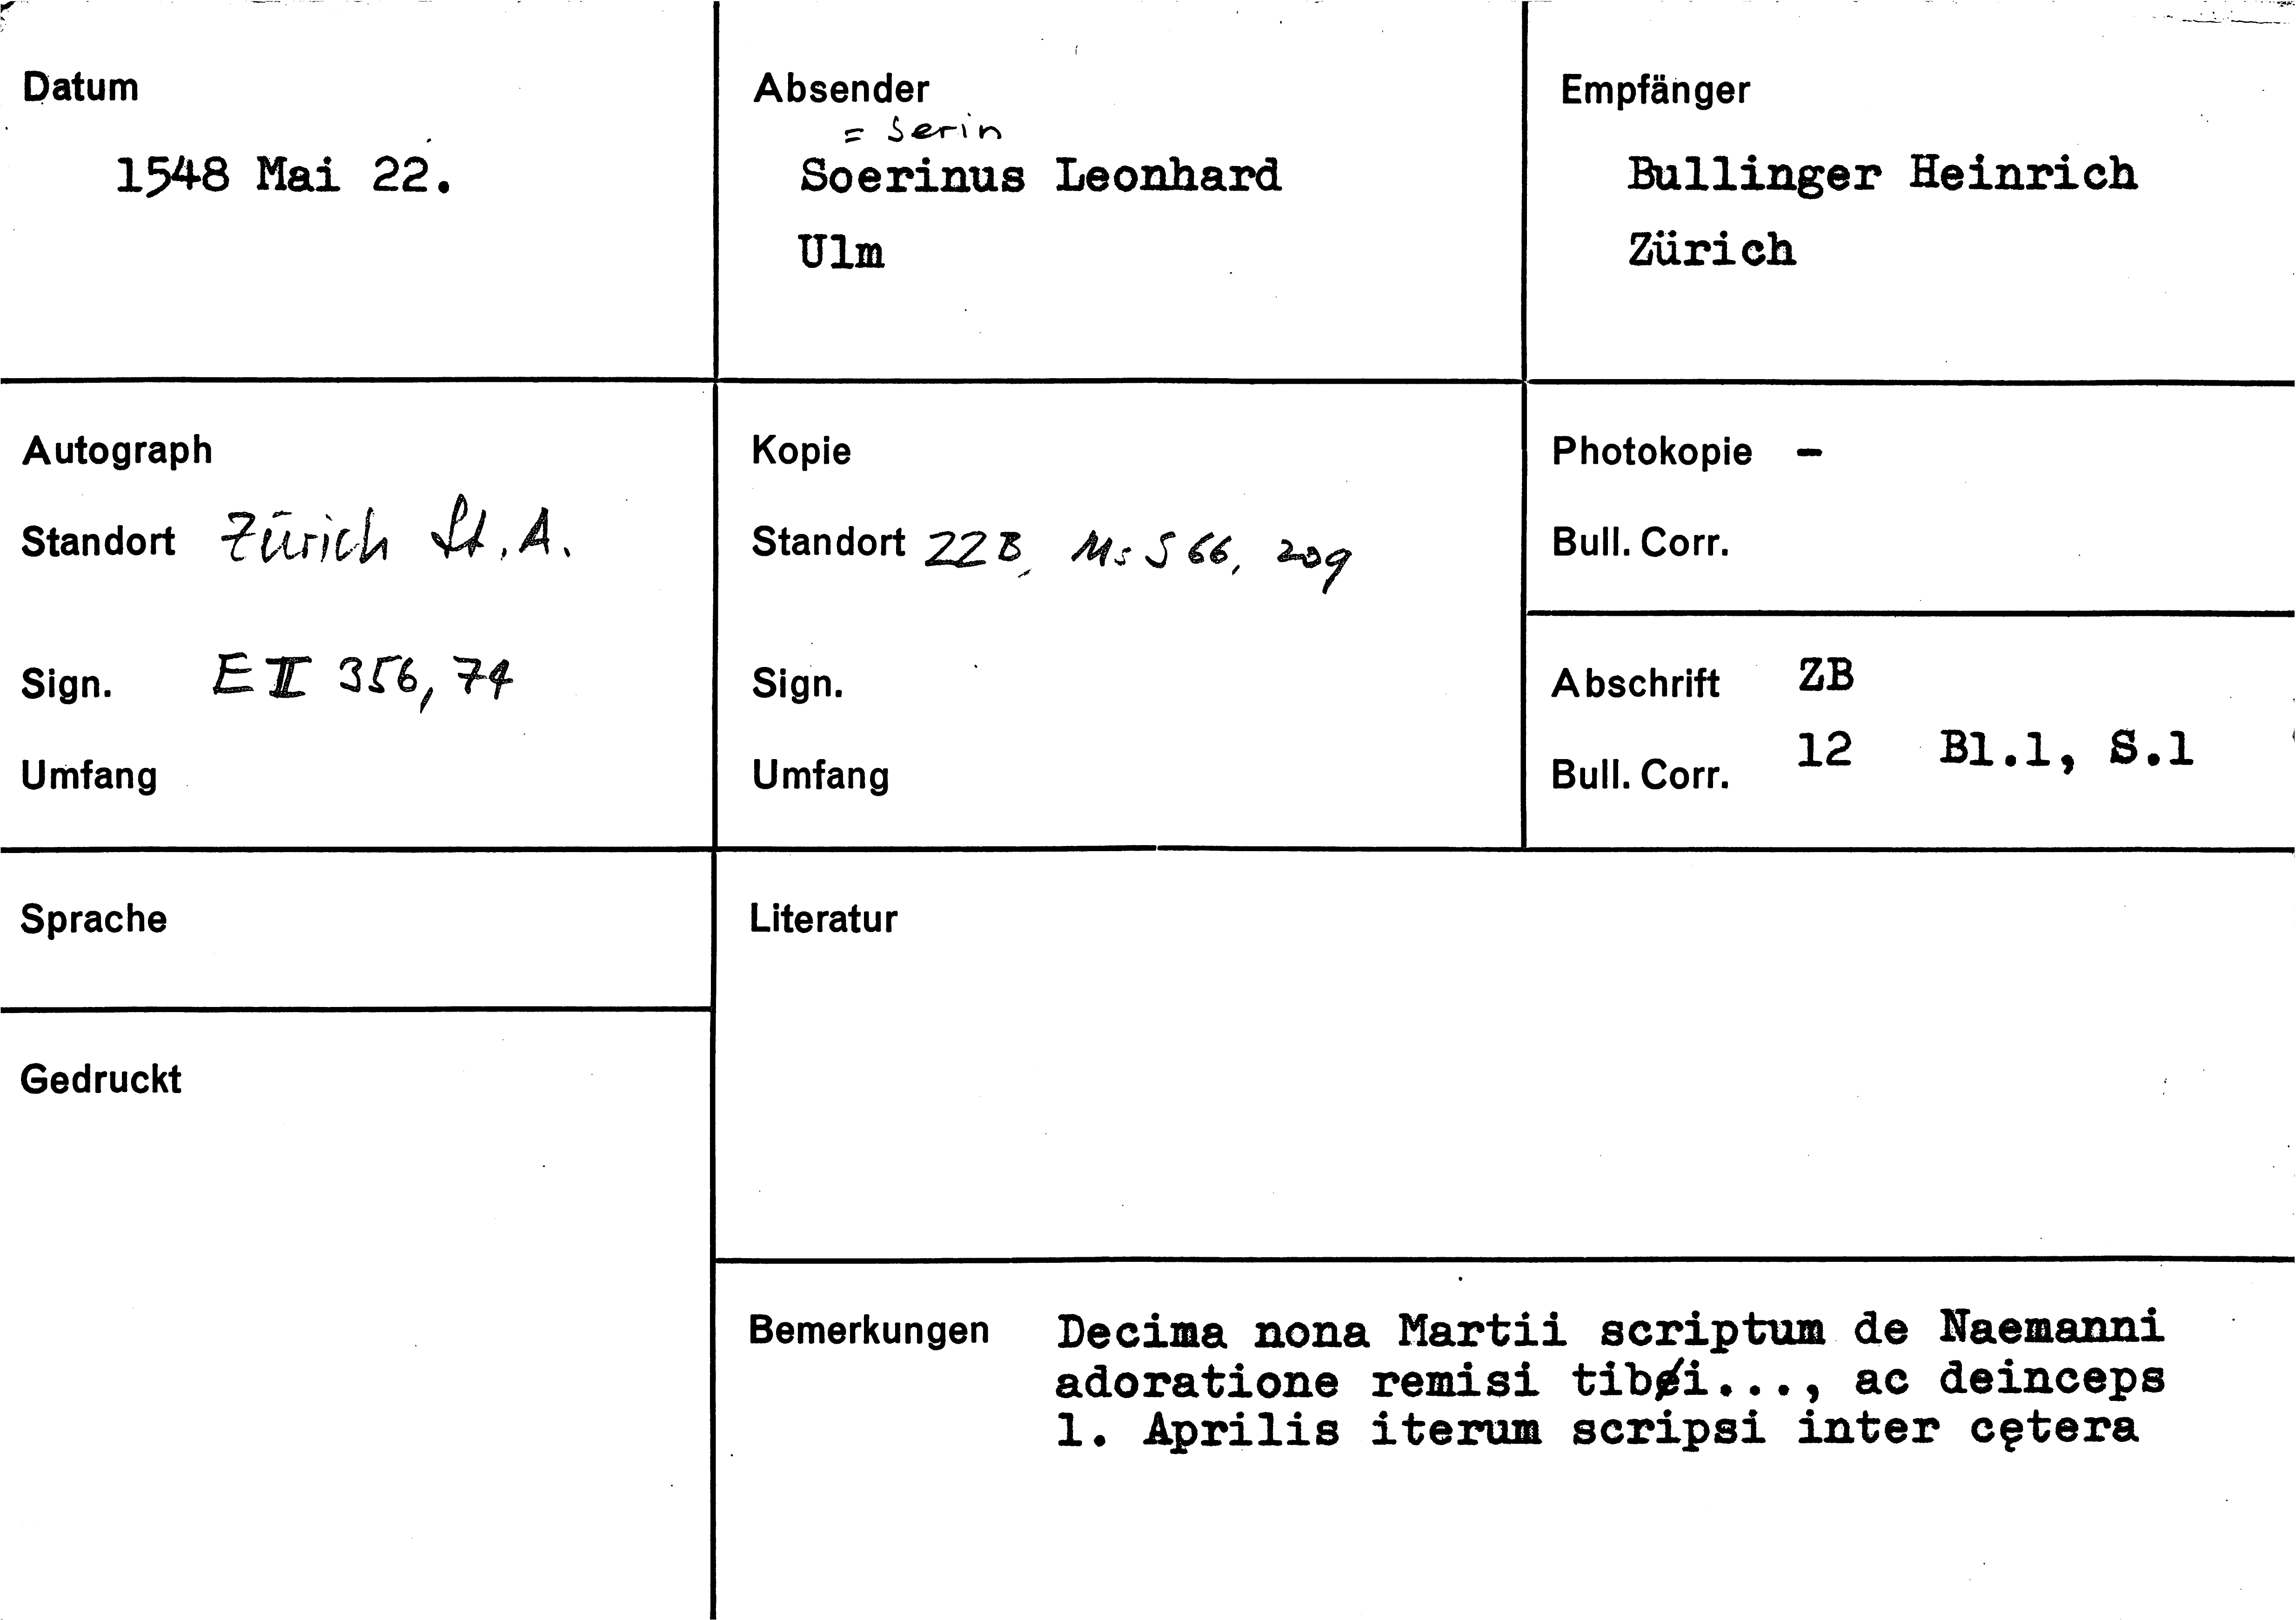 Datum
1548 Mai 22.
Absender
= Serin
Soerinus Leonhard
Ulm
Empfänger
Bullinger Heinrich
Zürich
Autograph
Standort Zürich St.A.
Sign. E II 356, 74
Umfang
Kopie
Standort ZZB, Ms S 66, 209
Sign.
Umfang
Photokopie -
Bull. Corr.
Abschrift ZB
Bull. Corr. 12 Bl.1, S.1
Sprache
Literatur
Gedruckt
Bemerkungen Decima nona Martii scriptum de Naemanni
adoratione remisi tibi..., ac deinceps
1. Aprilis iterum scripsi inter cętera